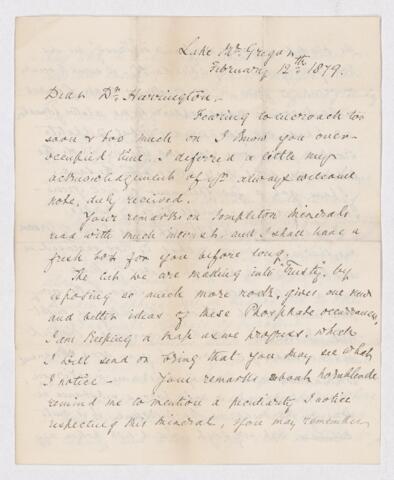 Lake Mc.Gregor
February 12th 1879.
Dear Dr. Harrington,
Fearing to encroach too
soon & too much on I know your over-
occupied time, I deferred a little my
acknowledgement of yr. always welcome
note, duly received.
Your remarks on Templeton minerals
read with much interest, and I shall have a
fresh box for you before long.
The cut we are making into "Trusty", by
exposing so much more rock, gives one new
and better ideas of these Phosphate occurrences,
I am keeping a map as we progress, which
I will send or bring that you may see what
I notice - Your remarks about hornblende
remind me to mention a peculiarity I notice
respecting this mineral, you may remember